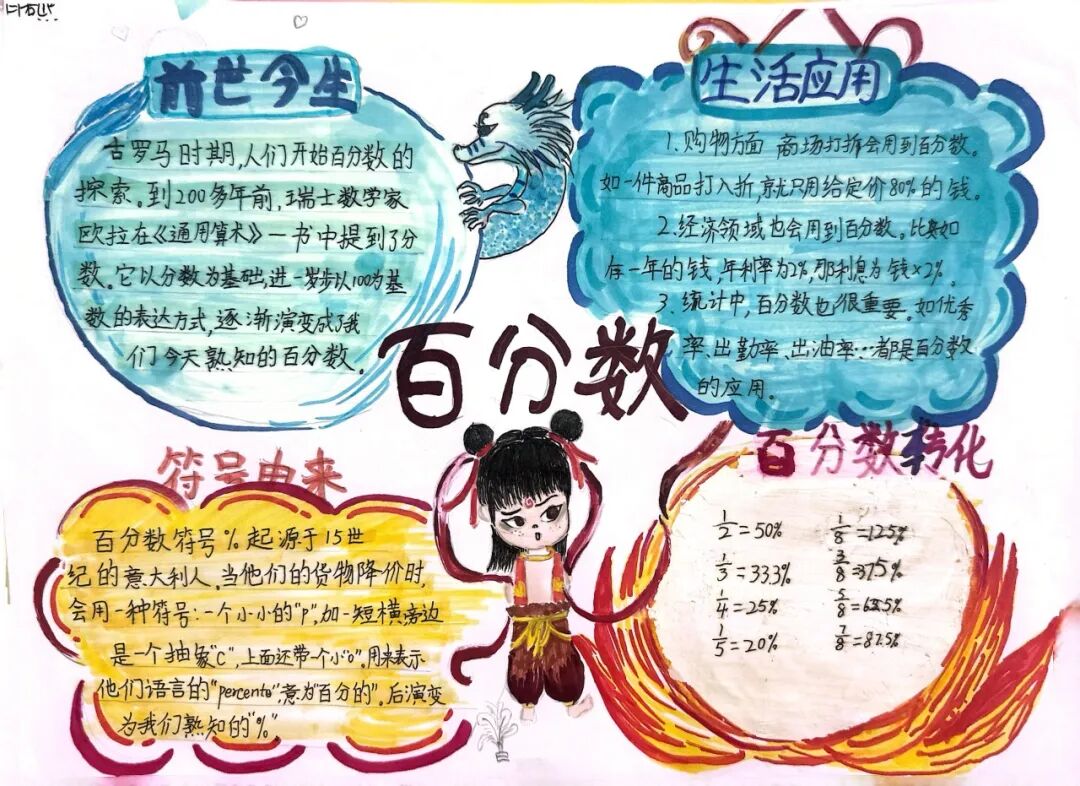 前世今生
古罗马时期,人们开始百分数的
探索。到200多年前,瑞士数学家
欧拉在《通用算术》一书中提到了分
数。它以分数为基础,进一岁步以100为基
数的表达方式,逐渐演变成了我
们今天熟知的百分数。
生活应用
1.购物方面 商场打折会用到百分数。
如一件商品打入折,就只用给定价80%的钱。
2.经济领域也会用到百分数。比如
存一年的钱,年利率为2%,那利息为钱×2%。
3.统计中,百分数也很重要。如优秀
率、出勤率、出油率…都是百分数
的应用。
百分数
符号由来
百分数符号%起源于15世
纪的意大利人。当他们的货物降价时,
会用一种符号:一个小小的"p",加一短横旁边
是一个抽象"C",上面还带一个小"o"。用来表示
他们语言的"percento",意为"百分的"。后演变
为我们熟知的"%"。
百分数转化
1/2=50% 1/8=12.5%
1/3=33.3% 3/8=37.5%
1/4=25% 5/8=62.5%
1/5=20% 7/8=87.5%